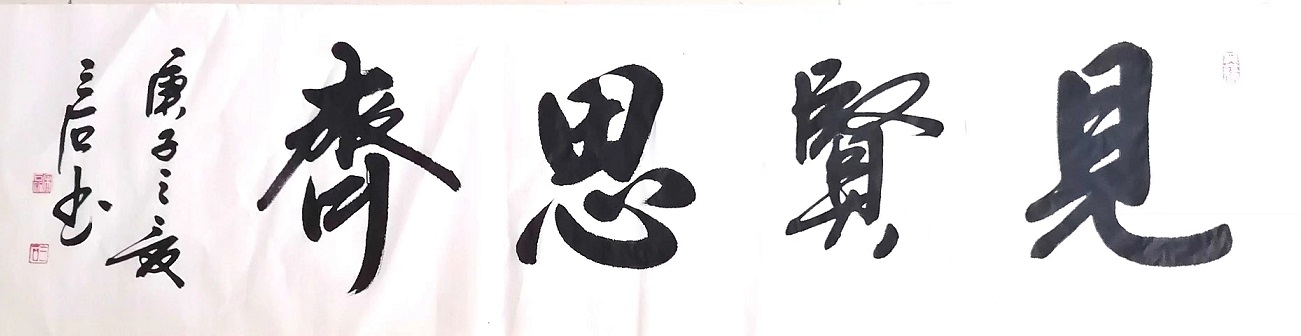 見賢思齊
庚子之夏
三石书